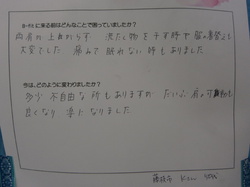 に来る前はどんなことで困っていましたか?
両肩が上がらず 洗たく物を干す時や服の着替えが
大変でした 痛みで眠れない時もありました
今は、どのように変わりましたか?
多少不自由な所もありますが だいぶ肩の可動も
良くなり 楽になりました
藤枝市